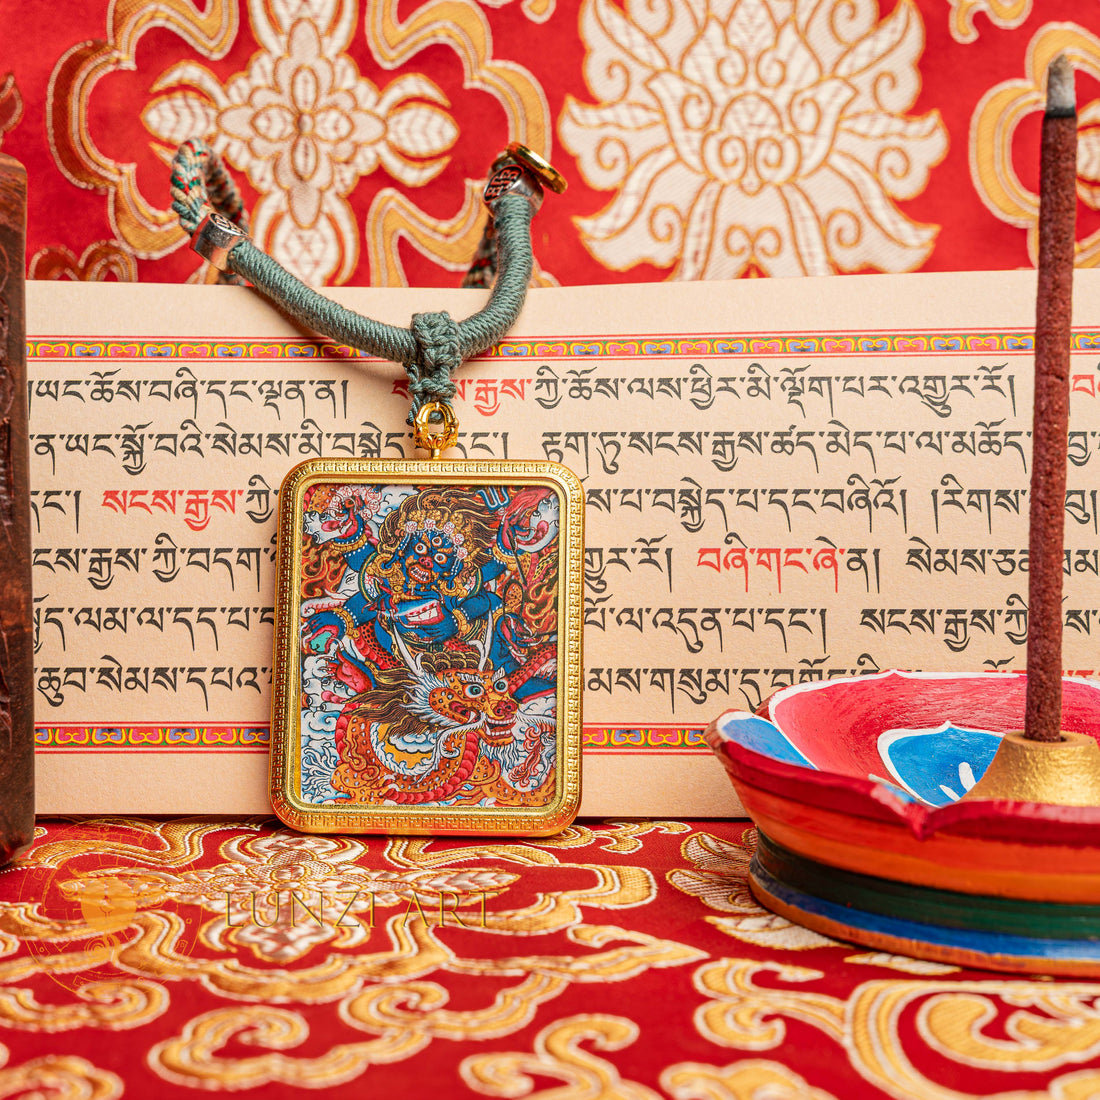 ཡང་ཆོས་བཞི་དང་ལྡན་ན། སངས་རྒྱས་ཀྱི་ཆོས་ལས་ཕྱིར་མི་ལྡོག་པར་འགྱུར་རོ།
ན་ཡང་སྐྱོ་བའི་སེམས་མི་བསྐྱེད་དང་། རྟག་ཏུ་སངས་རྒྱས་ཚད་མེད་པ་ལ་མཆོད་
དང་། སངས་རྒྱས་ཀྱི་ ས་པ་བསྐྱེད་པ་དང་བཞིའོ། །རིགས་
ངས་རྒྱས་ཀྱི་བདག་ གྱུར་རོ། བཞི་གང་ཞེ་ན། སེམས་ཅན་ཐམ
ད་ལམ་ལ་དད་པ་ པོ་ལ་འདུན་པ་དང་། སངས་རྒྱས་ཀྱི་
ཆུབ་སེམས་དཔའ་ མས་གསུམ་དུ་བགྲོད་
LUNZI ART